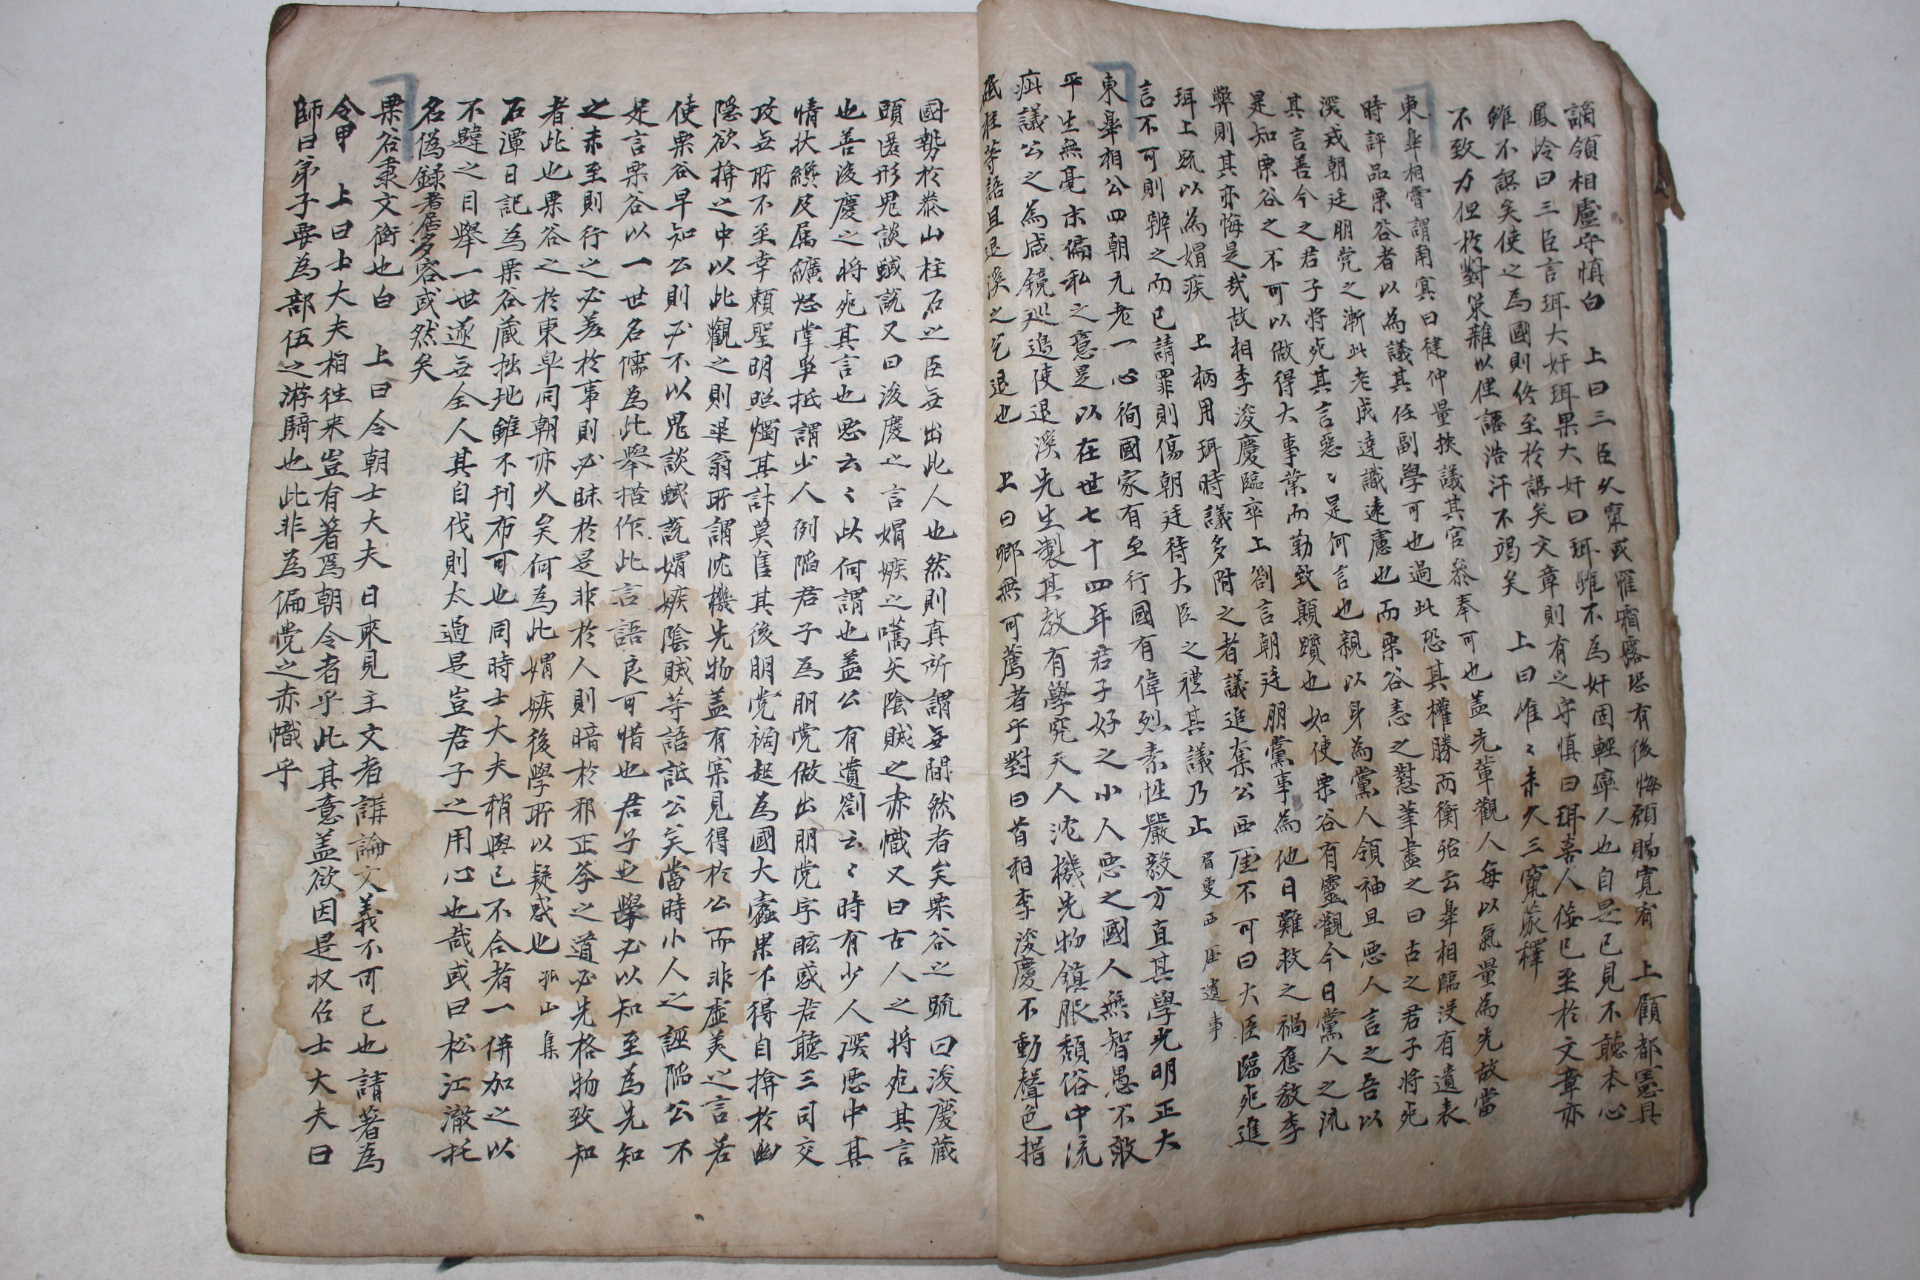 謫領相盧守愼白 上曰三臣久竄或罹霜露恐有後悔願賜寬宥 上顧都憲具
鳳怜曰三臣言珥大奸珥果大奸曰珥雖不爲奸固輕率人也自是已見不聽本心
雖不誤矣使之爲國則終至於誤矣文章則有之守愼曰珥喜人佞已至於文章亦
不致力但於對策雜以俚語浩汗不竭矣 上曰唯〻未久三竄蒙釋
東皐相嘗謂南冥曰健仲量挾議其官叅奉可也盖先輩觀人每以氣量爲先故當
時評品栗谷者以爲議其任副學可也過此恐其權勝而衡殆云皐相臨沒有遺表
深戒朝廷朋党之漸此老成達識遠慮也而栗谷恚之懟筆盡之曰古之君子將死
其言善今之君子將死其言惡〻是何言也親以身爲黨人領袖且惡人言之吾以
是知栗谷之不可以做得大事業而勤致顚躓也如使栗谷有靈觀今日黨人之流
弊則其亦悔是哉故相李浚慶臨卒上劄言朝廷朋黨事爲他日難救之禍應敎李
珥上疏以爲媢疾 上柄用珥時議多附之者議追奪公西厓不可曰大臣臨死進
言不可則辨之而已請罪則傷朝廷待大臣之禮其議乃止 眉叟西厓遺事
東皐相公四朝元老一心徇國家有至行國有偉烈素性嚴毅方直其學光明正大
平生無毫末偏私之意是以在世七十四年君子好之小人惡之國人無智愚不敢
疵議公之爲咸鏡巡邊使退溪先生製其敎有學究天人沈機先物鎭服頹俗中流
砥柱等語且退溪之乞退也 上曰卿無可薦者乎對曰首相李浚慶不動聲色措
國勢於泰山柱石之臣無出此人也然則眞所謂無間然者矣栗谷之疏曰浚慶藏
頭匿形鬼談蜮說又曰浚慶之言媢嫉之嚆矢陰賊之赤幟又曰古人之將死其言
也善浚慶之將死其言也惡云〻此何謂也盖公有遺劄云〻時有少人深惡中其
情狀纔及属纊怒掌爭抵謂少人例陷君子爲朋党做出朋党字眩惑君聽三司交
攻無所不至幸賴聖明照燭其計莫售其後朋党禍起爲國大蠹果不得自揜於幽
隱欲揜之中以此觀之則退翁所謂沈機先物盖有宲見得於公而非虛美之言若
使栗谷早知公則必不以鬼談蜮說媢嫉陰賊等語詆公矣當時小人之誣陷公不
足言栗谷以一世名儒爲此擧措作此言語良可惜也君子之學必以知至爲先知
之未至則行之必差於事則必昧於是非於人則暗於邪正夲之道必先格物致知
者此也栗谷之於東皐同朝亦久矣何爲此媢嫉後學所以疑惑也 孤山集
石潭日記爲栗谷蔵拙地雖不刊布可也同時士大夫稍與已不合者一倂加之以
不韙之目擧一世遂無全人其自伐則太過是豈君子之用心也哉或曰松江澈托
名僞錄者居多容或然矣
栗谷秉文衡也白 上曰令朝士大夫日聚見主文者講論文義不可已也請著爲
令甲 上曰士大夫相往来豈有著爲朝令者乎此其意盖欲因是収召士大夫曰
師曰弟子要爲部伍之游騎也此非爲偏党之赤幟乎